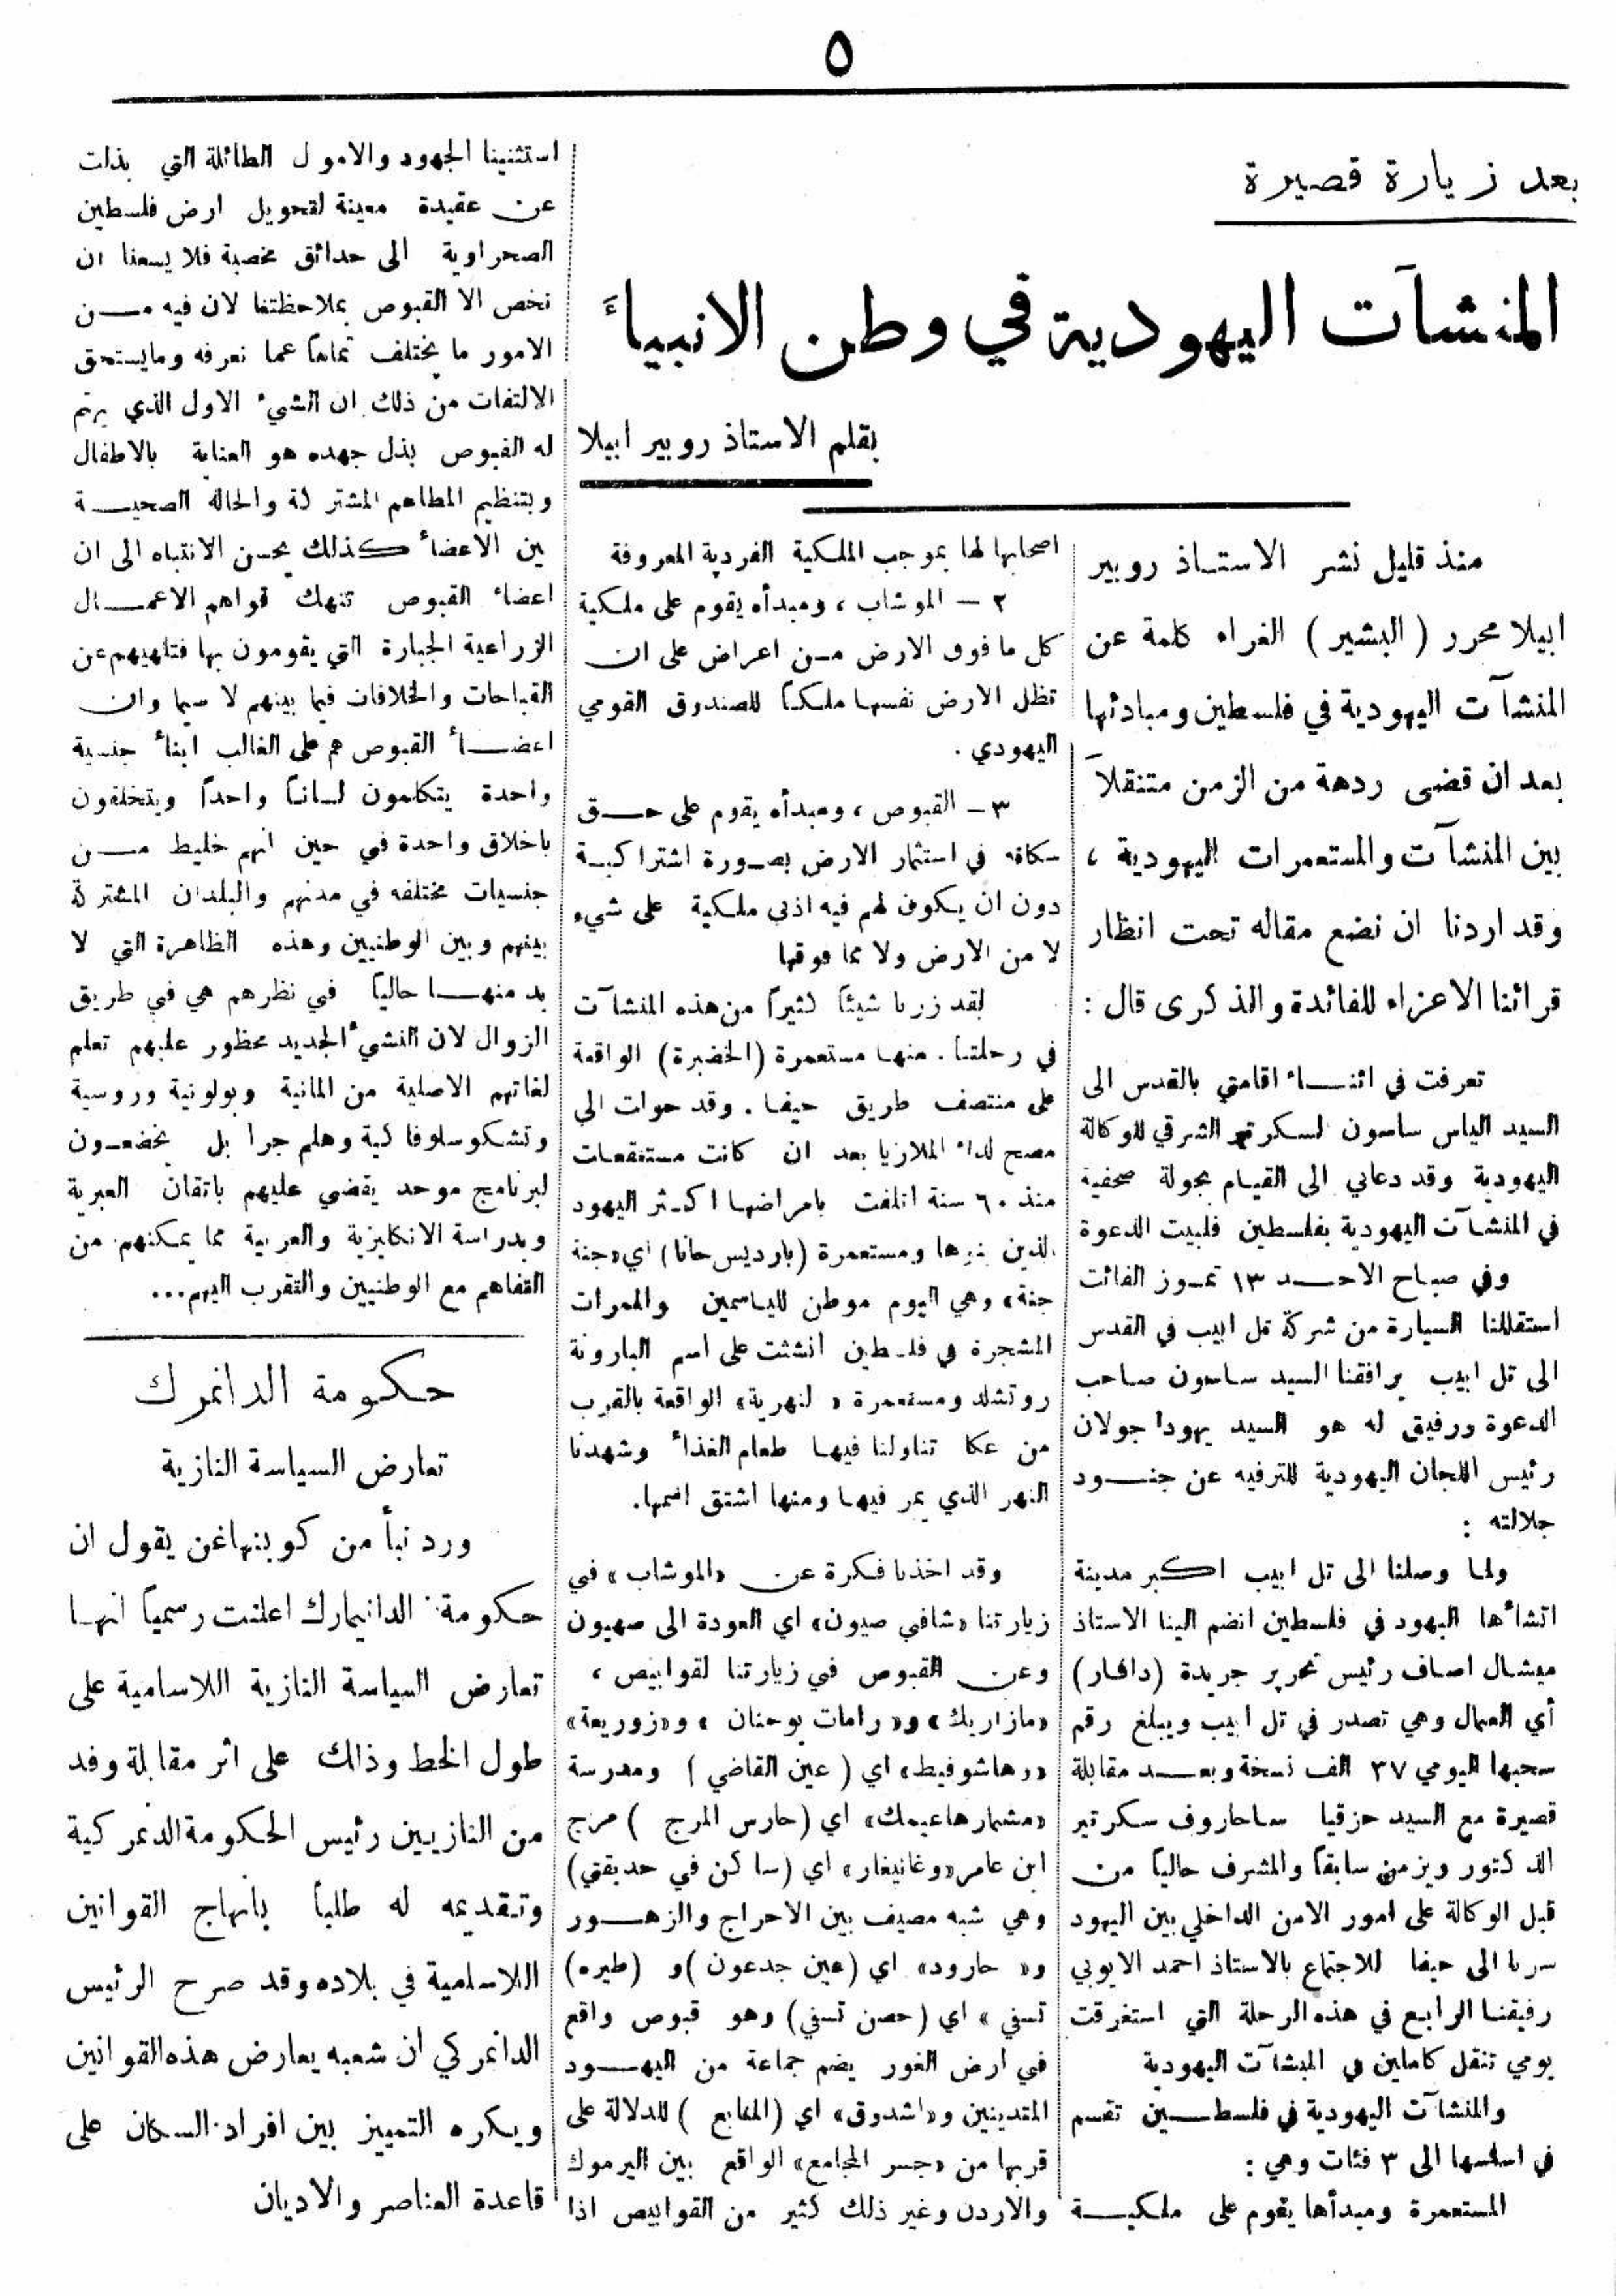 ٥
بعد زيارة قصيرة
المنشآت اليهودية في وطن الانبياءَ
بقلم الاستاذ روبير ابيلا
منذ قليل نشر الاستاذ روبير
ابيلا محرر ( البشير ) الغراء كلمة عن
المنشآت اليهودية في فلسطين ومبادئها
بعد ان قضى ردهة من الزمن متنقلاً
بين المنشآت والمستعمرات اليهودية ،
وقد اردنا ان نضع مقاله تحت انظار
قرائنا الاعزاء للفائدة والذكرى قال :
تعرفت في اثنـــاء اقامتي بالقدس الى
السيد الياس ساسون لسكرتير الشرقي للوكالة
اليهودية وقد دعاني الى القيام بجولة صحفية
في المنشآت اليهودية بفلسطين فلبيت الدعوة
وفي صباح الاحـــد ١٣ تمـوز الفائت
استقللنا السيارة من شركة تل ابيب في القدس
الى تل ابيب يرافقنا السيد ساسون صاحب
الدعوة ورفيق له هو السيد يهودا جولان
رئيس اللجان اليهودية للترفيه عن جنـــود
جلالته :
ولما وصلنا الى تل ابيب اكبر مدينة
انشاءها اليهود في فلسطين انضم الينا الاستاذ
ميشال اصاف رئيس تحرير جريدة (دافار)
أي العمال وهي تصدر في تل ابيب ويبلغ رقم
سحبها اليومي ٣٧ الف نسخة وبعـــد مقابلة
قصيرة مع السيد حزقيا ساحاروف سكرتير
الدكتور ويزمن سابقاً والمشرف حالياً من
قبل الوكالة على امور الامن الداخلي بين اليهود
سرنا الى حيفا للاجتماع بالاستاذ احمد الايوبي
رفيقنا الرابع في هذه الرحلة التي استغرقت
يومي تنقل كاملين في المبشآت اليهودية
والمنشآت اليهودية في فلسطـــين تقسم
في اساسها الى ٣ فئات وهي :
المستعمرة ومبدأها يقوم على ملكيـــة
اصحابها لها بموجب الملكية الفردية المعروفة
٢ — الموشاب ، ومبدأه يقوم على ملكية
كل ما فوق الارض مـن اعراض على ان
تظل الارض نفسها ملكاً للصندوق القومي
اليهودي .
٣ – القبوص ، ومبدأه يقوم على حـــق
سكانه في استثمار الارض بصـورة اشتراكيـة
دون ان يكون لهم فيه اذنى ملكية على شيء
لا من الارض ولا مما فوقها
لقد زرنا شيئاً كثيراً من هذه المنشآت
في رحلتنا . منها مستعمرة (الخضيرة) الواقعة
على منتصف طريق حيفا . وقد حوات الى
مصح لداء الملازيا بعد ان كانت مستنقعات
منذ ٦٠ سنة اتلفت بامراضها اكـثر اليهود
الذين ها ومستعمرة (بارديس حانا) اي «جنة
جنة» وهي اليوم موطن للياسمين والممرات
المشجرة في فلـطين انشئت على اسم البارونة
روتشلد ومستعمرة « لنهرية» الواقعة بالقرب
من عكا تناولنا فيها طعام الغذاء وشهدنا
النهر الذي يمر فيها ومنها اشتق اسمها.
وقد اخذنا فكرة عن «الموشاب» في
زيارتنا «شافي صيون» اي العودة الى صهيون
وعن القبوص في زيارتنا لقوابيص ،
«مازاريك» و« رامات يوحنان » و«زوريعة»
«رهاشوفيط» اي ( عين القاضي ) ومدرسة
«مشمارهاعيمك» اي (حارس المرج ) مرج
ابن عامر «وغانيغار» اي (ساكن في حديقتي)
وهي شبه مصيف بين الاحراج والزهـــور
و« حارود» اي (عين جدعون )و (طيره)
تسفي » اي (حصن تسفي) وهو قبوص واقع
في ارض الغور يضم جماعة من اليهـــود
المتدينين و«اشدوق» اي (المنابع ) للدلالة على
قربها من «جسر المجامع» الواقع بين اليرموك
والاردن وغير ذلك كثير من القوابيص اذا
استثنينا الجهود والامول الطائلة التي بذلت
عن عقيدة معينة لتحويل ارض فلسطين
الصحراوية الى حدائق مخصبة فلا يسعنا ان
نخص الا القبوص بملاحظتنا لان فيه مـــن
الامور ما يختلف تماماً عما نعرفه ومايستحق
الالتفات من ذلك ان الشيء الاول الذي يهتم
له القبوص بذل جهده هو العناية بالاطفال
وبتنظيم المطاعم المشتركة والحالة الصحيـــة
بين الاعضاء كذلك يحسن الانتباه الى ان
اعضاء القبوص تنهك قواهم الاعمـــال
الزراعية الجبارة التي يقومون بها فتلهيهم عن
القباحات والخلافات فيما بينهم لا سيما وان
اعضـــاء القبوص هم على الغالب ابناء جنسية
واحدة يتكلمون لساناً واحداً ويتخلقون
باخلاق واحدة في حين انهم خليط مـــن
جنسيات مختلفه في مدنهم والبلدان المشتركة
بينهم وبين الوطنيين وهذه الظاهرة التي لا
بد منهـــا حالياً في نظرهم هي في طريق
الزوال لان النشيء الجديد محظور عليهم تعلم
لغاتهم الاصلية من المانية وبولونية وروسية
وتشكوسلوفاكية وهلم جرا بل يخضعـون
لبرنامج موحد يقضي عليهم باتقان العبرية
وبدراسة الانكليزية والعربية مما يمكنهم من
التفاهم مع الوطنيين والتقرب اليهم...
حكومة الدانمرك
تعارض السياسة النازية
ورد نبأ من كوبنهاغن يقول ان
حكومة الدانيمارك اعلنت رسمياً انها
تعارض السياسة النازية اللاسامية على
طول الخط وذالك على اثر مقابلة وفد
من النازيين رئيس الحكومة الدنمركية
وتقديمه له طلباً بانهاج القوانين
اللاسامية في بلاده وقد صرح الرئيس
الدانمركي ان شعبه يعارض هذه القوانين
ويكره التمييز بين افراد السكان على
قاعدة العناصر والاديان